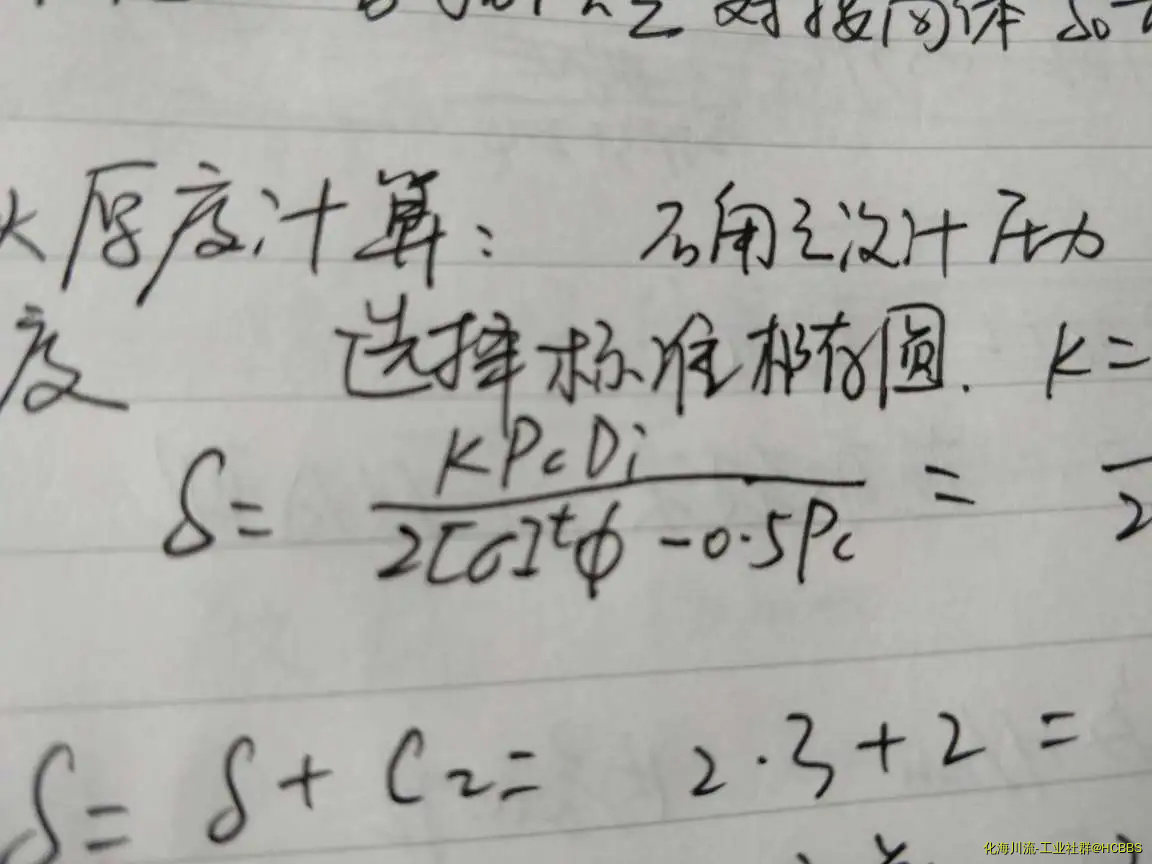 对接筒体 δ0
厚度计算： 不用之设计压力
度 选择标准椭圆. K=
δ= KPcDi / 2[σ]tϕ -0.5Pc = 2
δ= δ + C2= 2.3+2 =
化海川流-工业社群@HCBBS